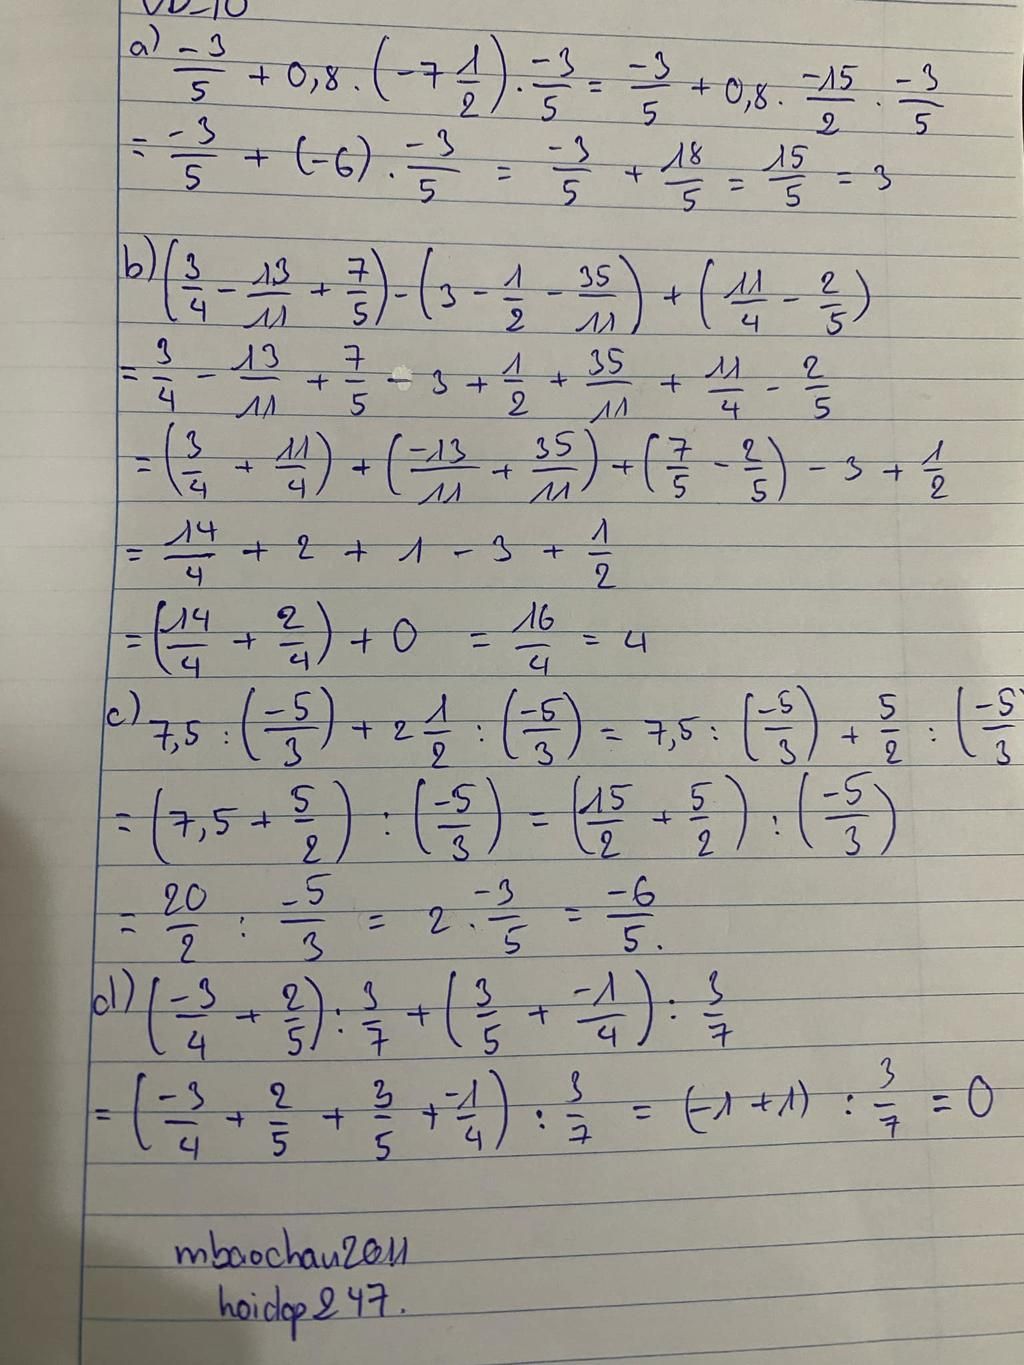 VD_10
a) -3/5 + 0,8 . (-7 1/2) . -3/5 = -3/5 + 0,8 . -15/2 . -3/5
= -3/5 + (-6) . -3/5 = -3/5 + 18/5 = 15/5 = 3
b) (3/4 - 13/11 + 7/5) - (3 - 1/2 - 35/11) + (11/4 - 2/5)
= 3/4 - 13/11 + 7/5 - 3 + 1/2 + 35/11 + 11/4 - 2/5
= (3/4 + 11/4) + (-13/11 + 35/11) + (7/5 - 2/5) - 3 + 1/2
= 14/4 + 2 + 1 - 3 + 1/2
= (14/4 + 2/4) + 0 = 16/4 = 4
c) 7,5 : (-5/3) + 2 1/2 : (-5/3) = 7,5 : (-5/3) + 5/2 : (-5/3
= (7,5 + 5/2) : (-5/3) = (15/2 + 5/2) : (-5/3)
= 20/2 : -5/3 = 2 . -3/5 = -6/5.
d) (-3/4 + 2/5) : 3/7 + (3/5 + -1/4) : 3/7
= (-3/4 + 2/5 + 3/5 + -1/4) : 3/7 = (-1 + 1) : 3/7 = 0
mbaochau2011
hoidap247.